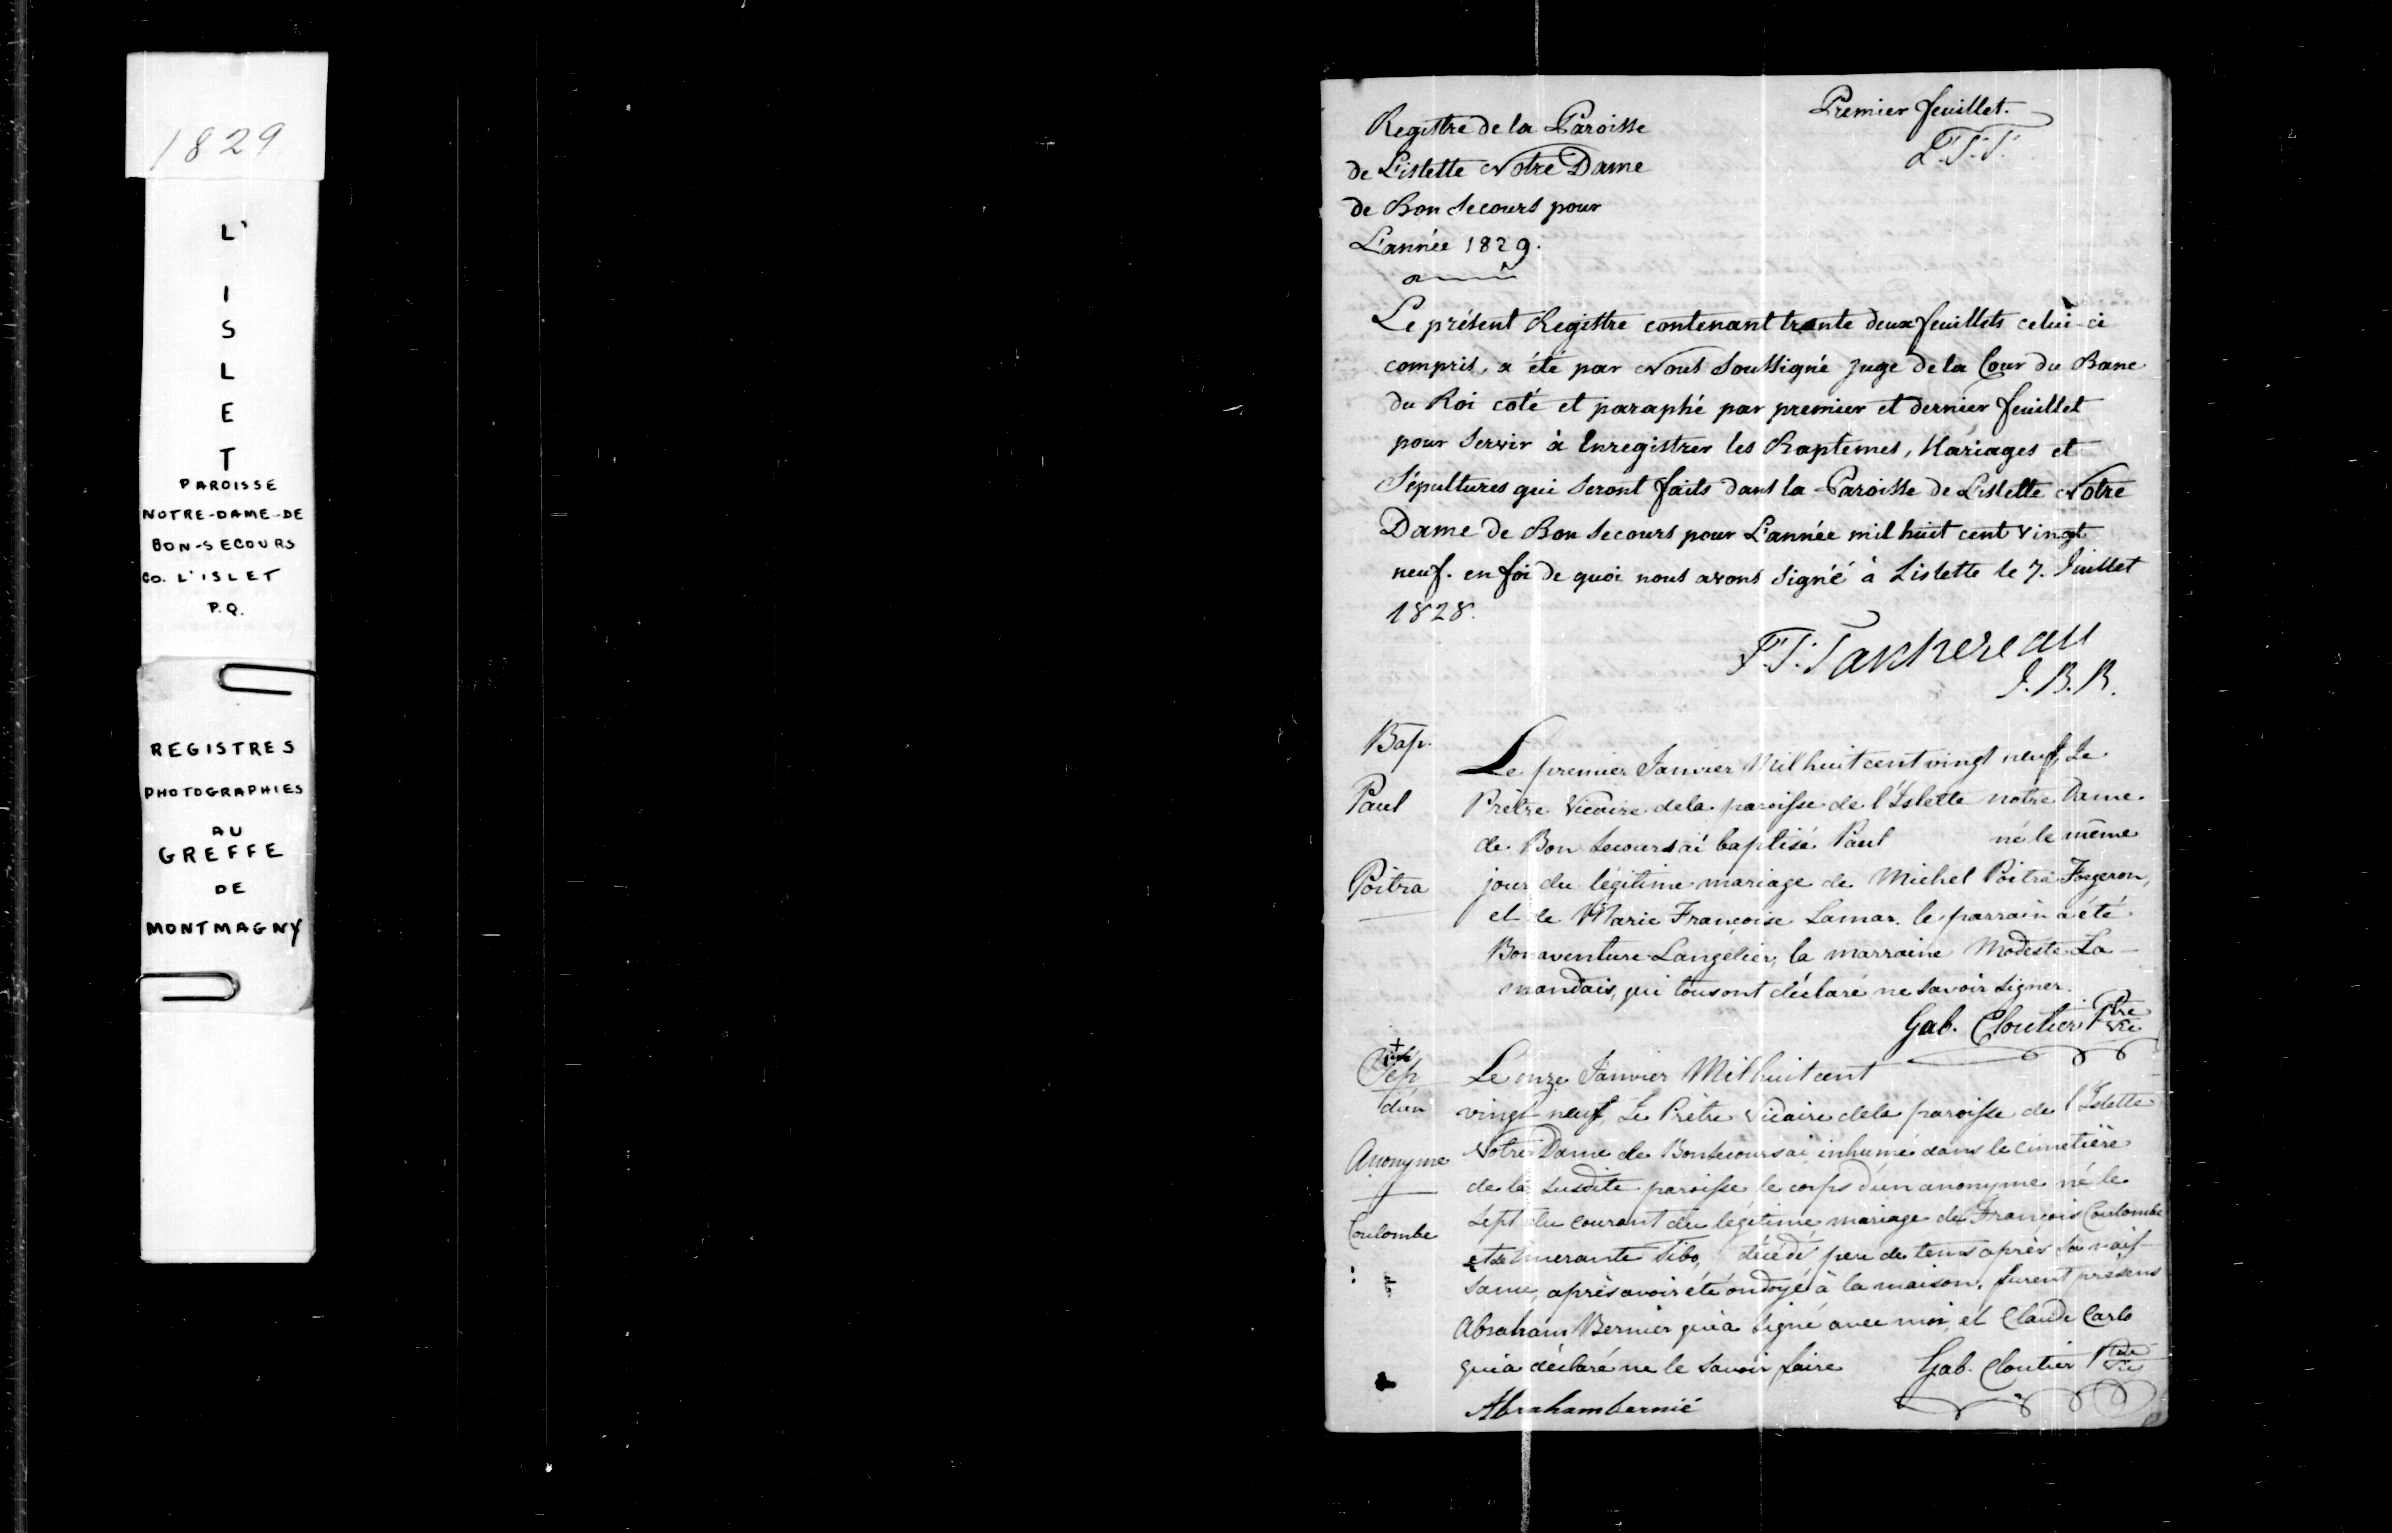 1829
L'
I
S
L
E
T
PAROISSE
NOTRE-DAME-DE
BON-SECOURS
CO. L'ISLET
P.Q.
REGISTRES
PHOTOGRAPHIES
AU
GREFFE
DE
MONTMAGNY
Premier feuillet.
Registre de la Paroisse
de L'islette Notre Dame
de Bon Secours pour
L'année 1829.
Le présent Registre contenant trente deux feuillets celui-ci
compris, a été par Nous Soussigné Juge de la Cour du Banc
du Roi coté et paraphé par premier et dernier feuillet
pour servir à Enregistrer les Baptemes, Mariages et
Sépultures qui seront faits dans la Paroisse de Lislette Notre
Dame de Bon Secours pour L'année mil huit cent vingt
neuf. en foi de quoi nous avons signé à Lislette le 7. Juillet
1828.
J.T. Taschereau
J.B.R.
Bap.
Paul
Poitra
Le premier Janvier Mil huit cent vingt neuf, Je
Prêtre Vicaire de la paroisse de l'Islette notre Dame
de Bon Secours ai baptisé Paul né le même
jour du légitime mariage de Michel Poitra Forgeron,
et de Marie Françoise Lamar. le parrain a été
Bonaventure Langélier, la marraine Modeste La-
mandais, qui tous ont déclaré ne savoir signer.
Gab. Cloutier Ptre Vic
Sep
d'un
Anonyme
Coulombe
Le onze Janvier Mil huit cent
vingt neuf, Je Prêtre Vicaire de la paroisse de l'Islette
Notre Dame de Bonsecours ai inhumé dans le cimetière
de la susdite paroisse le corps d'un anonyme né le
sept du courant du légitime mariage de François Coulombe
et de Emerante Tibo, décédé peu de tems après sa nais-
sance, après avoir été ondoyé à la maison. furent présens
Abraham Bernier qui a signé avec moi, et Claude Carlo
qui a déclaré ne le savoir faire Gab. Cloutier Ptre Vic
Abraham bernié